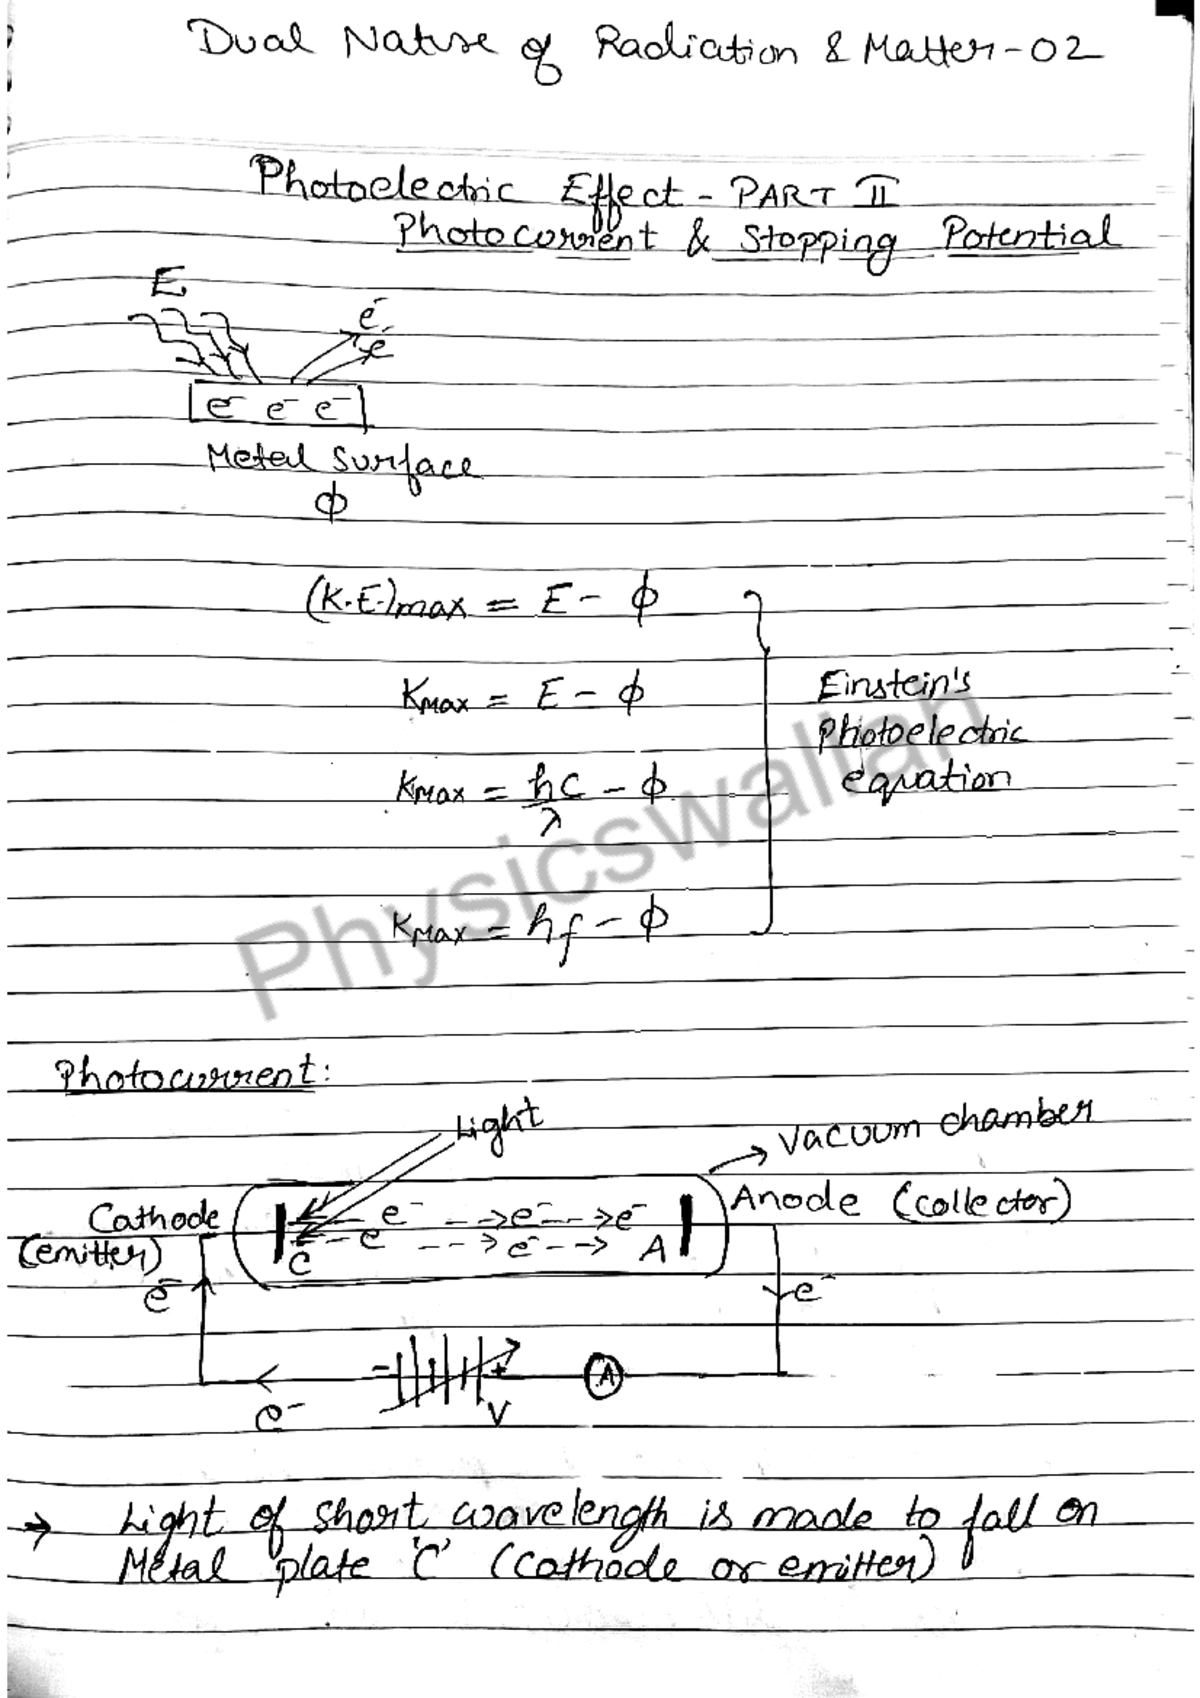 Dual Nature of Radiation & Matter-02
Photoelectric Effect - PART II
Photocurrent & Stopping Potential
E
e-
e-
e- e- e-
Metal Surface
ϕ
(K.E.)max = E - ϕ
KMax = E - ϕ
KMax = hc/λ - ϕ
KMax = hf - ϕ
Einstein's
Photoelectric
equation
Physicswallah
Photocurrent:
Light
Vacuum chamber
Cathode
(emitter)
Anode (collector)
e- e- e-
e e-
C
A
e-
e-
- + A
V
e-
→ Light of short wavelength is made to fall on
Metal plate 'C' (Cathode or emitter)